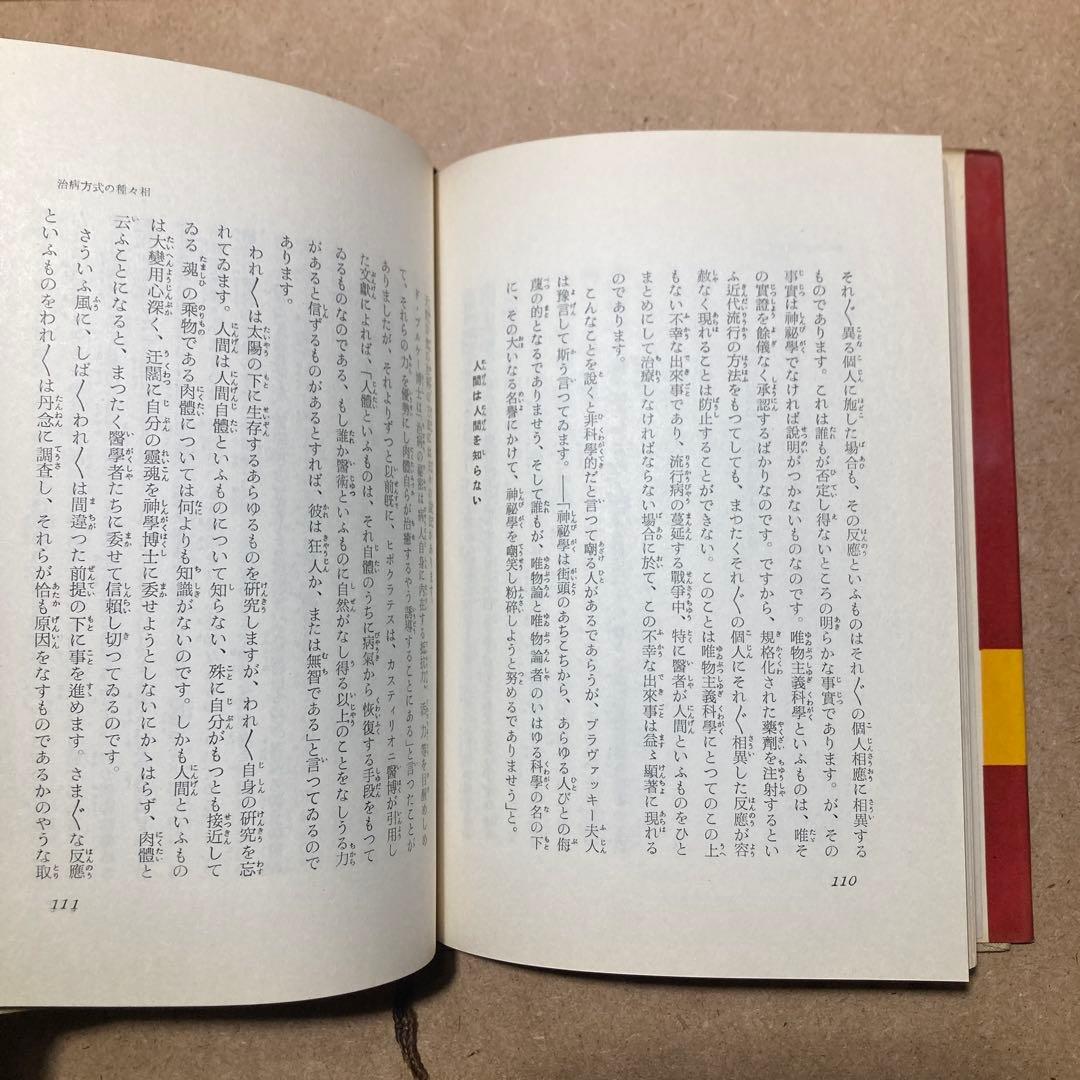 それ〴〵異る個人に施した場合も、その反應といふものはそれ〴〵の個人相應に相異する
ものであります。これは誰もが否定し得ないところの明らかな事實であります。が、その
事實は神祕學でなければ説明がつかないものなのです。唯物主義科學といふものは、唯そ
の實證を餘儀なく承認するばかりなのです。ですから、規格化された藥劑を注射するとい
ふ近代流行の方法をもつてしても、まつたくそれ〴〵の個人にそれ〴〵相異した反應が容
赦なく現れることは防止することができない。このことは唯物主義科學にとつてこの上
もない不幸な出來事であり、流行病の蔓延する戰爭中、特に醫者が人間といふものをひと
まとめにして治療しなければならない場合に於て、この不幸な出來事は益〻顯著に現れる
のであります。
こんなことを說くと非科學的だと言つて嘲る人があるであらうが、ブラヴァッキー夫人
は豫言して斯う言つてゐます。――「神祕學は街頭のあちこちから、あらゆる人びとの侮
蔑の的となるでありませう、そして誰もが、唯物論と唯物論者のいはゆる科學の名の下
に、その大いなる名譽にかけて、神祕學を嘲笑し粉碎しようと努めるでありませう」と。
人間は人間を知らない
110
治病方式の種々相
て、それらの力を優勢にし肉體自らが治癒するやう誘導することにある」と言つたことが
ありましたが、それよりずつと以前既に、ヒポクラテスは、カスティリオニ醫博が引用し
た文獻によれば、「人體といふものは、それ自體のうちに病氣から恢復する手段をもつて
ゐるものなのである、もし誰か醫術といふものに自然がなし得る以上のことをなしうる力
があると信ずるものがあるとすれば、彼は狂人か、または無智である」と言つてゐるので
あります。
われ〳〵は太陽の下に生存するあらゆるものを研究しますが、われ〳〵自身の研究を忘
れてゐます。人間は人間自體といふものについて知らない、殊に自分がもつとも接近して
ゐる魂の乘物である肉體については何よりも知識がないのです。しかも人間といふもの
は大變用心深く、迂闊に自分の靈魂を神學博士に委せようとしないにかゝはらず、肉體と
云ふことになると、まつたく醫學者たちに委せて信賴し切つてゐるのです。
さういふ風に、しば〳〵われ〳〵は間違つた前提の下に事を進めます。さま〴〵な反應
といふものをわれ〳〵は丹念に調査し、それらが恰も原因をなすものであるかのやうな取
111